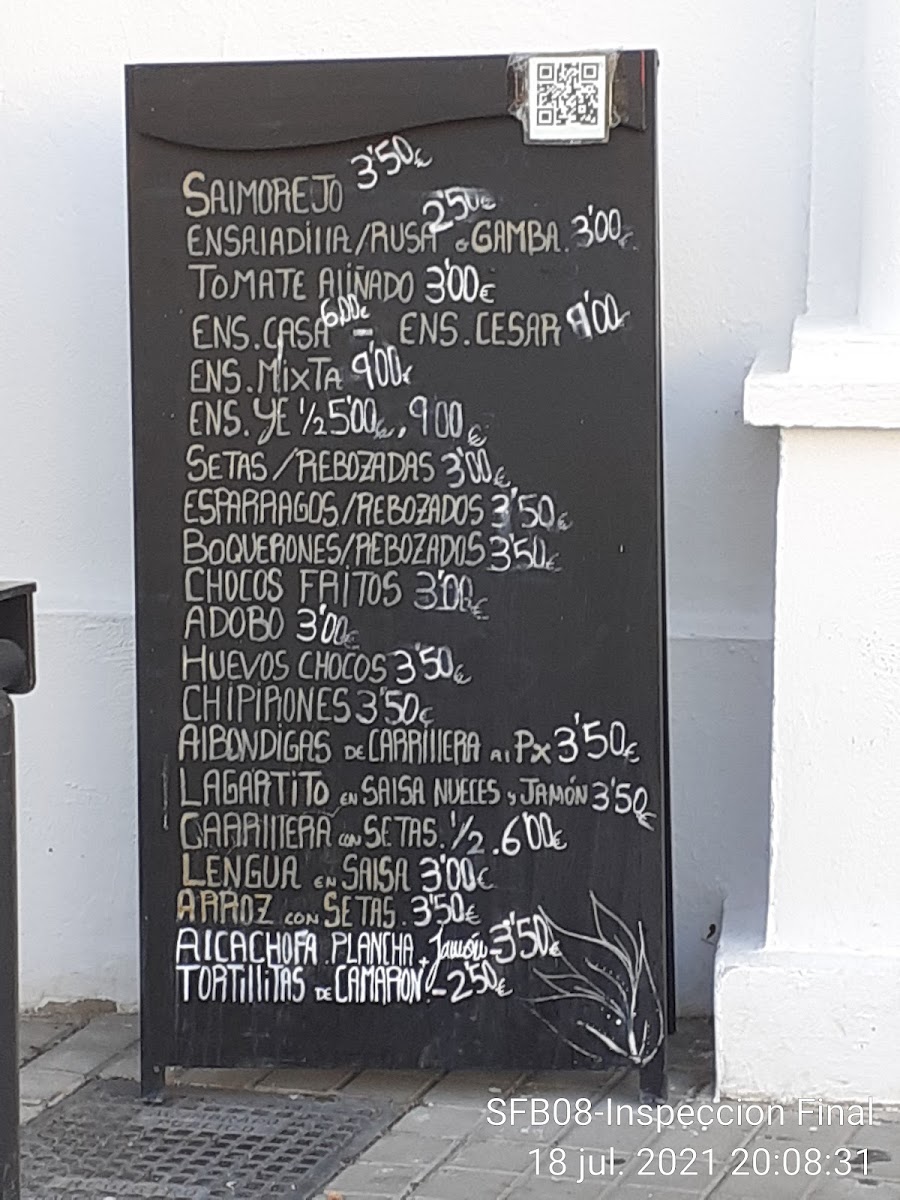 SAlMOREJO 3'50€
ENSAlADIllA/RUSA 2'50€ o GAMBA. 3'00€
TOMATE AlIÑADO 3'00€
ENS.CASA 6,00€ - ENS.CESAR 9'00€
ENS.MIXTA 9'00€
ENS.YE 1/2 5'00€, 9'00€
SETAS/REBOZADAS 3'00€
ESPARRAGOS/REBOZADOS 3'50€
BOQUERONES/REBOZADOS 3'50€
CHOCOS FRITOS 3'00€
ADOBO 3'00€
HUEVOS CHOCOS 3'50€
CHIPIRONES 3'50€
AlBONDIGAS DE CARRIllERA Al PX 3'50€
LAGARTITO EN SAlSA NUECES y JAMÓN 3'50€
CARRIllERA CON SETAS. 1/2. 6'00€
LENGUA EN SAlSA 3'00€
ARROZ CON SETAS. 3'50€
AlCACHOFA PLANCHA + Jamón - 3'50€
TORTIllITAS DE CAMARON. - 2'50€
SFB08-Inspeccion Final
18 jul. 2021 20:08:31